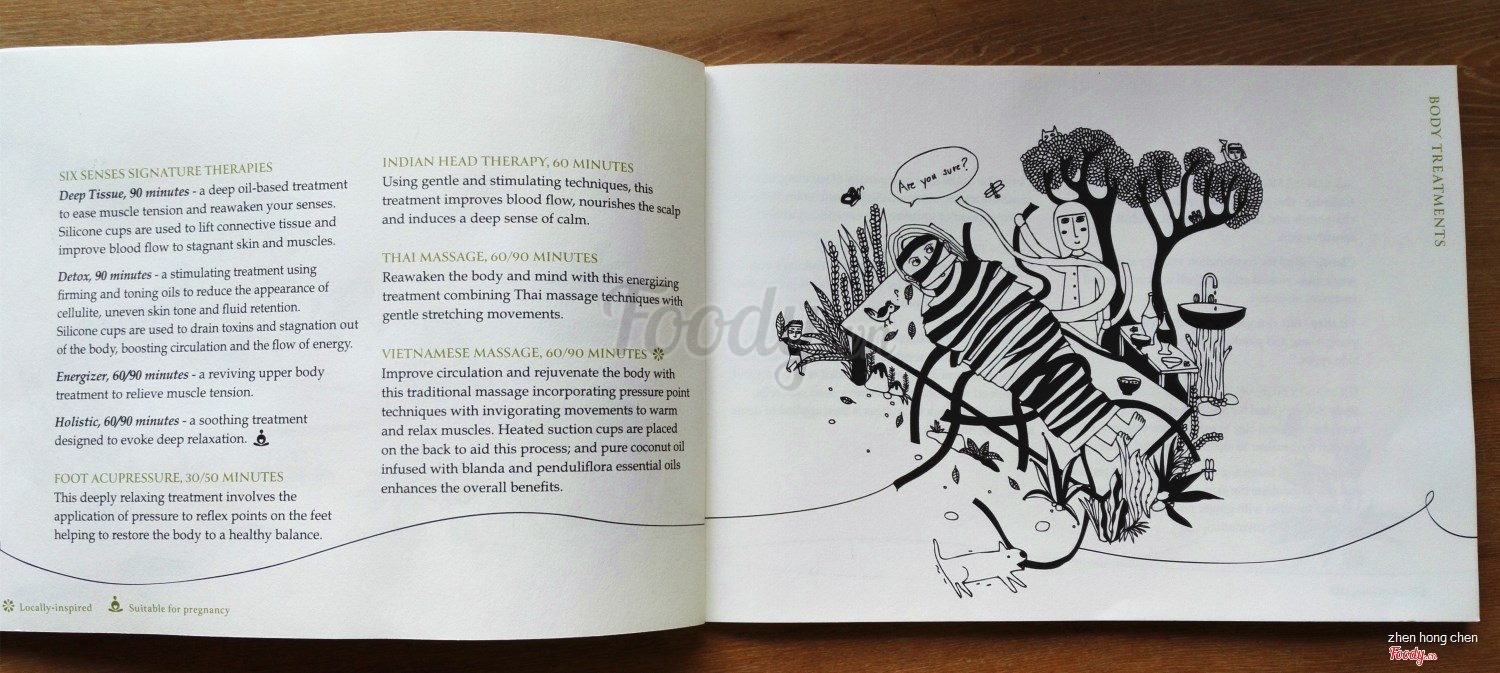 SIX SENSES SIGNATURE THERAPIES
Deep Tissue, 90 minutes - a deep oil-based treatment
to ease muscle tension and reawaken your senses.
Silicone cups are used to lift connective tissue and
improve blood flow to stagnant skin and muscles.
Detox, 90 minutes - a stimulating treatment using
firming and toning oils to reduce the appearance of
cellulite, uneven skin tone and fluid retention.
Silicone cups are used to drain toxins and stagnation out
of the body, boosting circulation and the flow of energy.
Energizer, 60/90 minutes - a reviving upper body
treatment to relieve muscle tension.
Holistic, 60/90 minutes - a soothing treatment
designed to evoke deep relaxation.
FOOT ACUPRESSURE, 30/50 MINUTES
This deeply relaxing treatment involves the
application of pressure to reflex points on the feet
helping to restore the body to a healthy balance.
Locally-inspired
Suitable for pregnancy
INDIAN HEAD THERAPY, 60 MINUTES
Using gentle and stimulating techniques, this
treatment improves blood flow, nourishes the scalp
and induces a deep sense of calm.
THAI MASSAGE, 60/90 MINUTES
Reawaken the body and mind with this energizing
treatment combining Thai massage techniques with
gentle stretching movements.
VIETNAMESE MASSAGE, 60/90 MINUTES
Improve circulation and rejuvenate the body with
this traditional massage incorporating pressure point
techniques with invigorating movements to warm
and relax muscles. Heated suction cups are placed
on the back to aid this process; and pure coconut oil
infused with blanda and penduliflora essential oils
enhances the overall benefits.
Are you sure?
BODY TREATMENTS
Foody.vn
zhen hong chen
Foody.vn